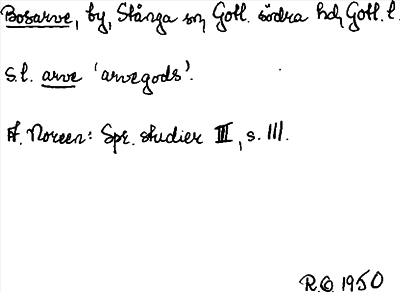 Bosarve, by, Stånga sn, Gotl. södra hd, Gotl. l.
s.l. arve 'arvegods'.
A. Noreen: Spr. studier III, s. 111.
R.O. 1950